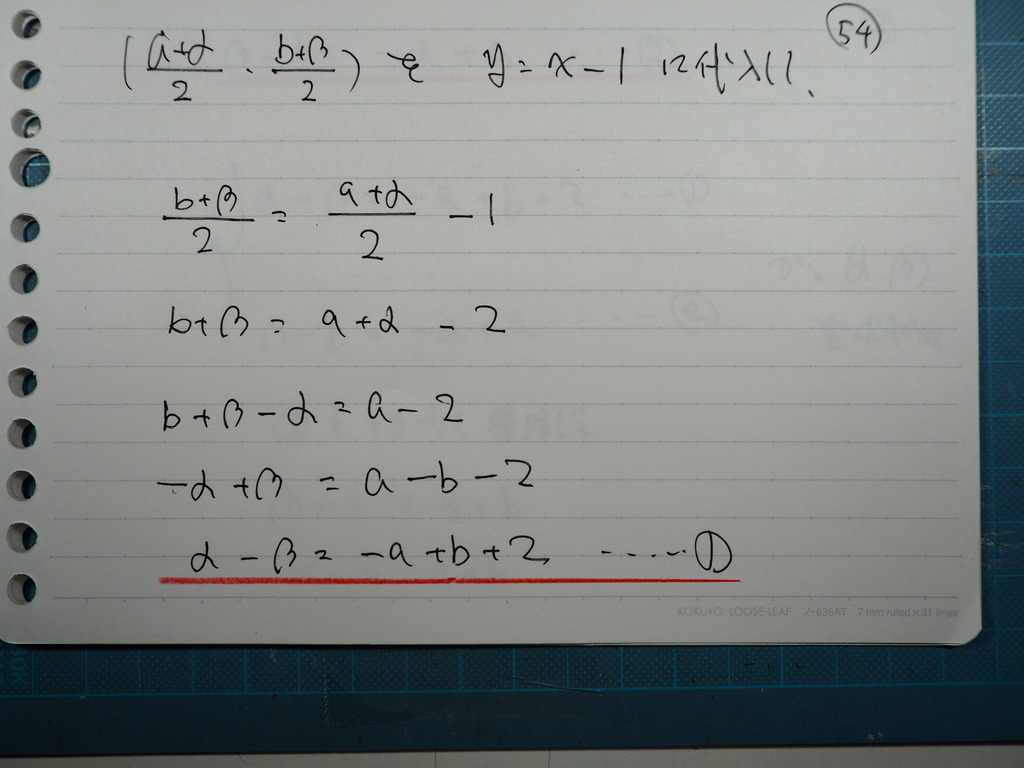 54
(a+α/2 ・ b+β/2) を y = x - 1 に代入し、
b+β/2 = a+α/2 - 1
b+β = a+α - 2
b+β-α = a-2
-α+β = a-b-2
α-β = -a+b+2 ‥‥‥①
KOKUYO LOOSE-LEAF ノ-836AT 7 mm ruled×31 lines